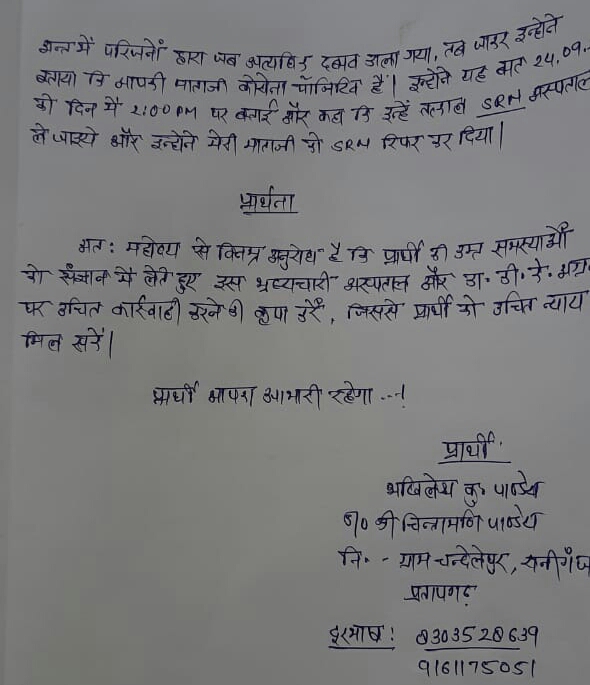 अन्त में परिजनों द्वारा जब अत्यधिक दबाव डाला गया, तब जाकर इन्होने
बताया कि आपकी माताजी कोरोना पॉजिटिव है। इन्होंने यह बात 24.09.
को दिन में 2:00 PM पर बताई और कहा कि इन्हें तत्काल SRN अस्पताल
ले जाइये और इन्होंने मेरी माताजी को SRN रिफर कर दिया।
प्रार्थना
अत: महोदय से विनम्र अनुरोध है कि प्रार्थी की उक्त समस्याओं
को संज्ञान में लेते हुए इस भ्रष्टाचारी अस्पताल और डा. डी. के. अग्र
पर उचित कार्रवाही करने की कृपा करें, जिससे प्रार्थी को उचित न्याय
मिल सकें।
प्रार्थी आपका आभारी रहेगा ...!
प्रार्थी
अखिलेश कु॰ पाण्डेय
S/o श्री चिन्तामणि पाण्डेय
नि॰ - ग्राम चन्देलेपुर, रानीगंज
प्रतापगढ़
दूरभाष: 8303528639
9161175051